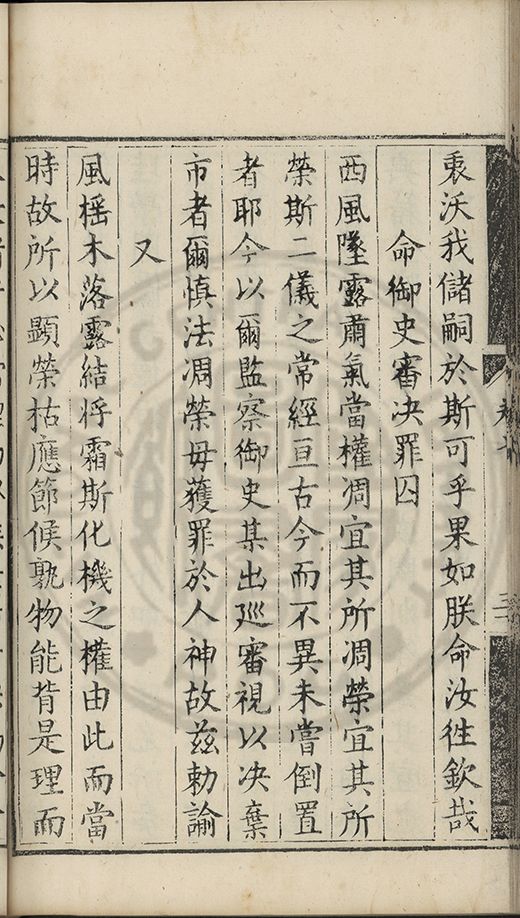 裠沃我儲嗣於斯可乎果如朕命汝徃欽哉
命御史審决罪囚
西風墜露肅氣當權凋宜其所凋榮宜其所
榮斯二儀之常經亘古今而不異未嘗倒置
者耶今以爾監察御史某出廵審視以决棄
市者爾慎法凋榮毋獲罪於人神故茲勅諭
又
風揺木落露結将霜斯化機之權由此而當
時故所以顯榮枯應節候孰物能背是理而